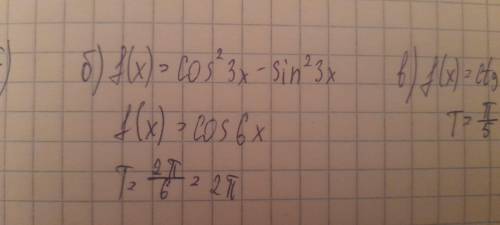 б) f(x) = cos²3x - sin²3x
f(x) = cos6x
T = 2π/6 = 2π
в) f(x) = ctg
T = π/5